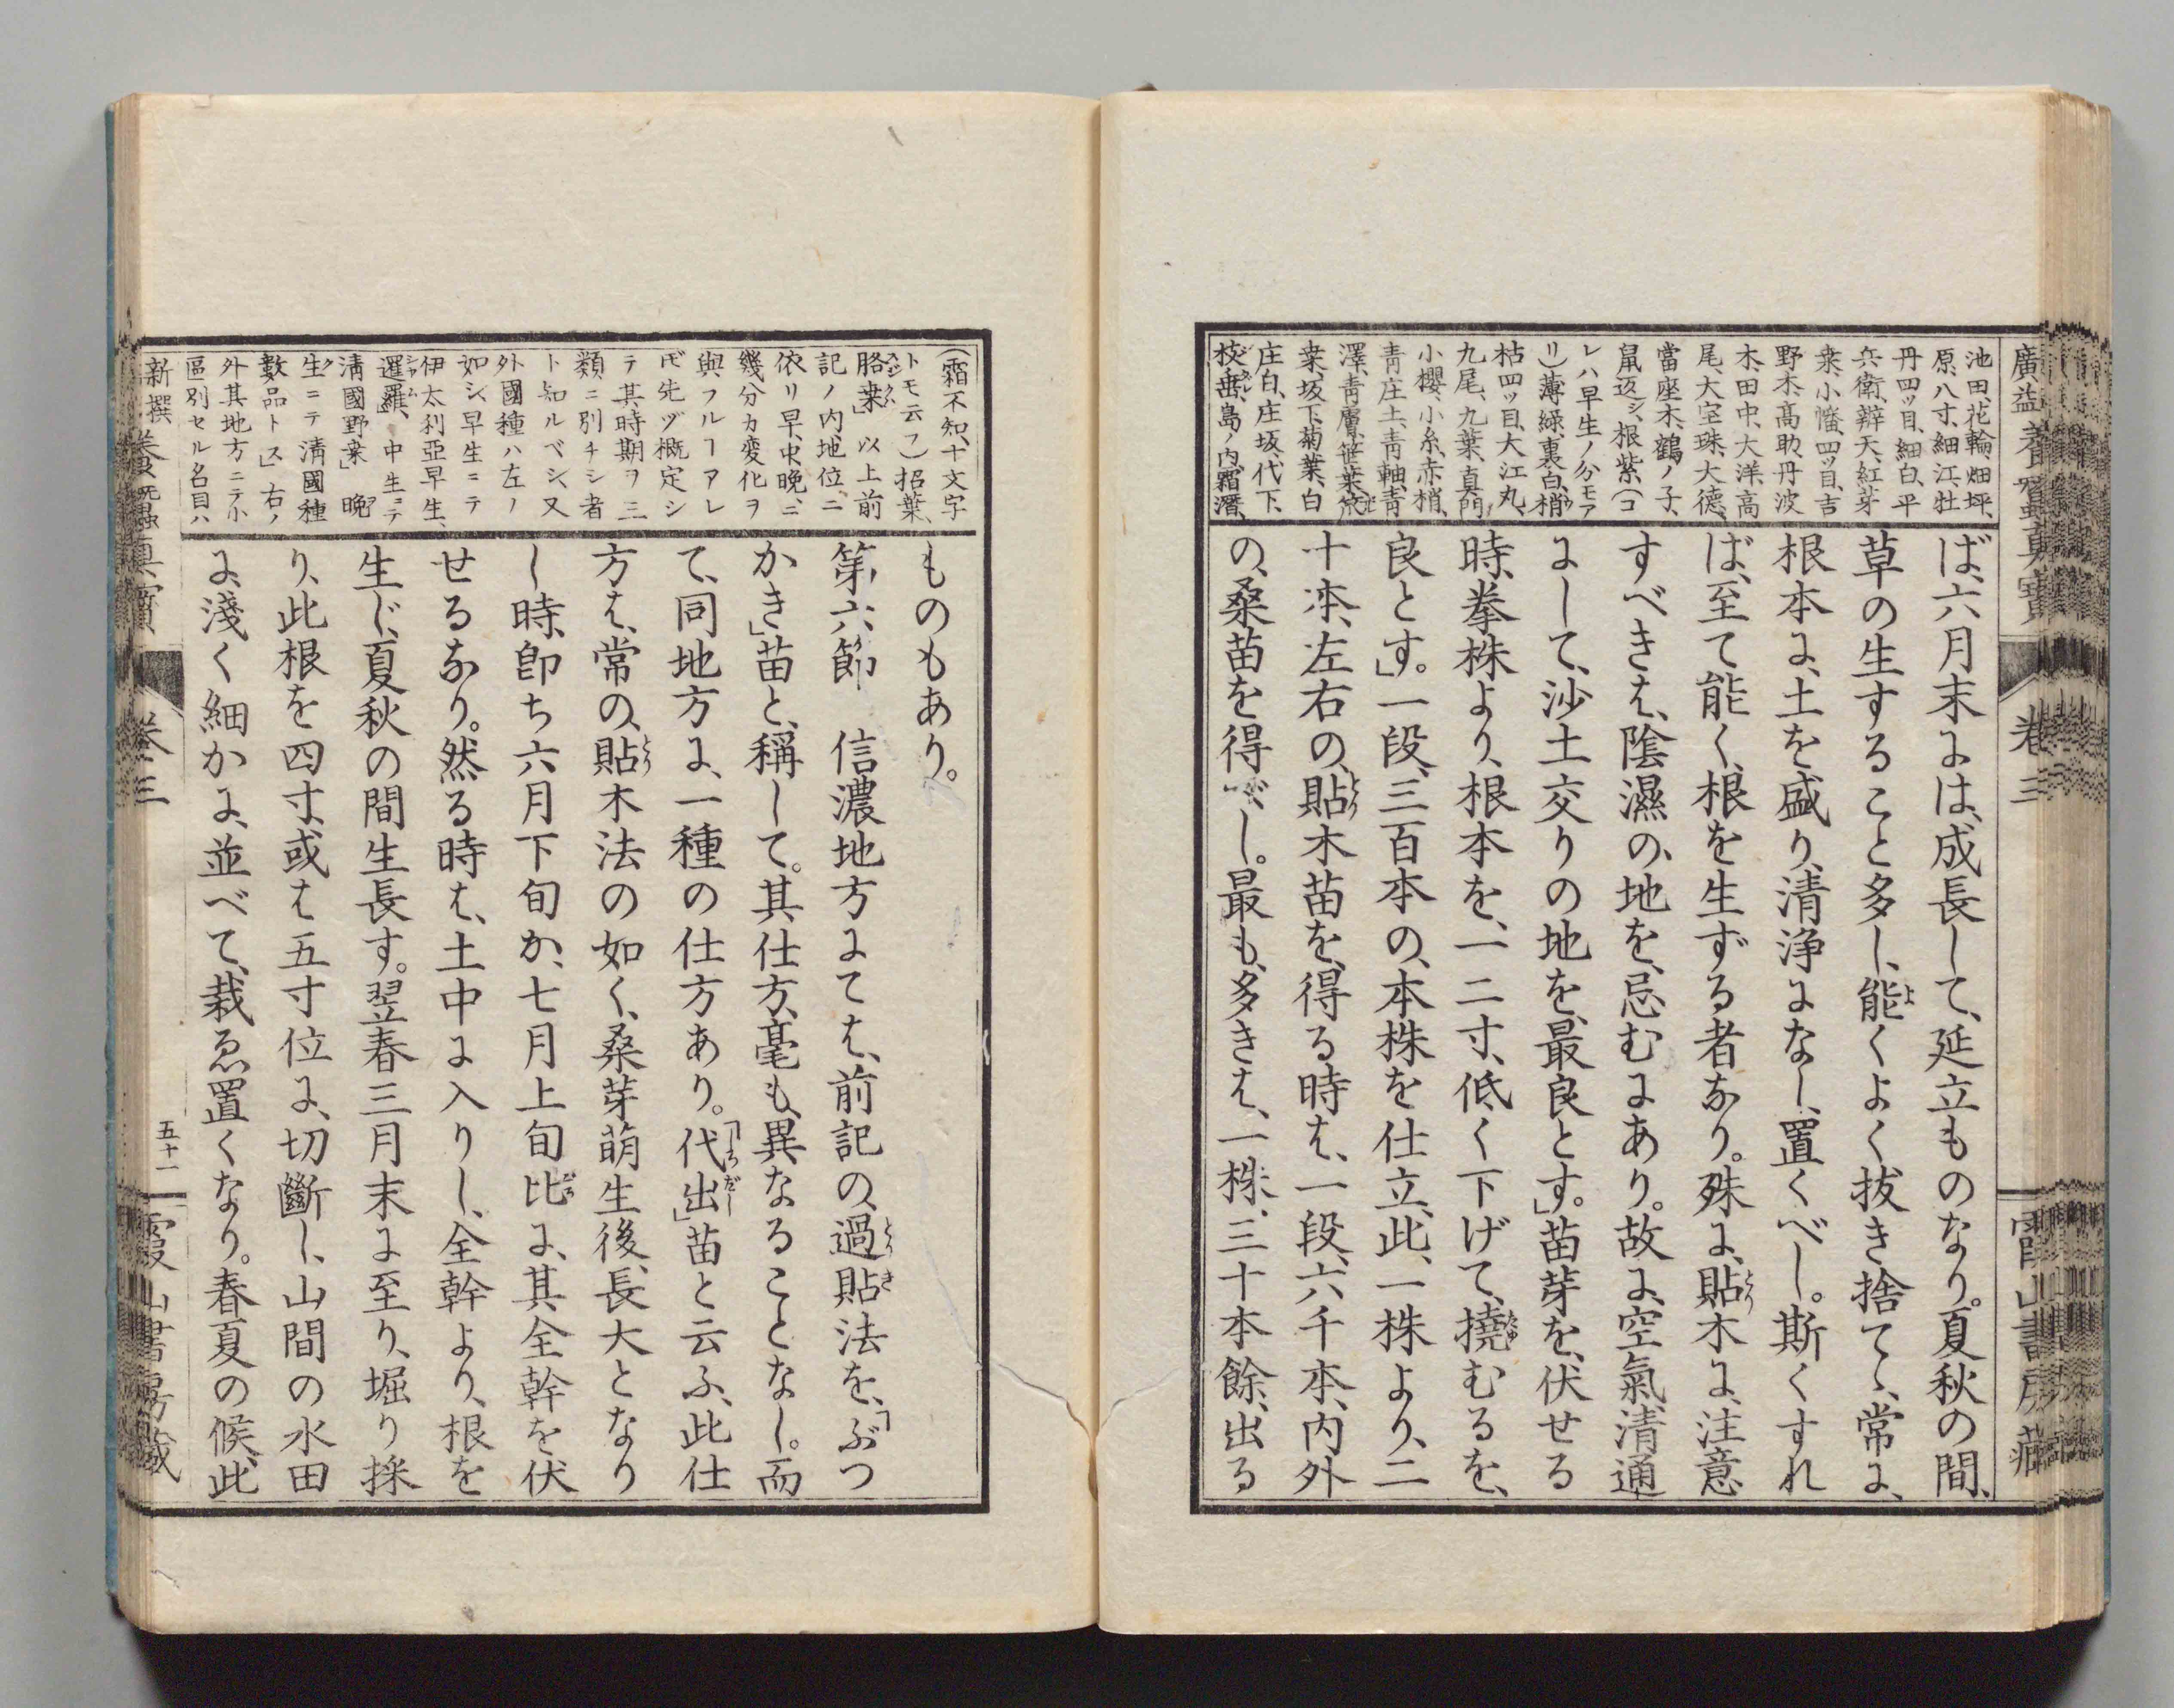 廣益養蠶真寳
卷三
霞山書房藏
池田、花輪、畑坪、
原、八寸、細江、牡
丹四ツ目、細白、平
兵衛、辨天、紅芽
桒、小幡、四ツ目、吉
野木、高助、丹波
木、田中、大洋、高
尾、大空珠、大德、
當座木、鶴ノ子、
鼠返シ、根紫、(コ
レハ早生ノ分モア
リ)薄緑、裏白、梢
枯四ッ目、大江丸、
九尾、九葉、真門
小櫻、小糸、赤梢、
靑庄土、靑軸、靑
澤、靑層、笹葉、
桒、坂下、菊葉、白
庄白、庄坂、代下、
枝垂、島ノ内、霜潛、
ば、六月末よは、成長して、延立ものなり。夏秋の間、
草の生すること多し、能くよく拔き捨てゝ、常よ、
根本よ、土を盛り、清浄よなし、置くべし。斯くすれ
ば、至て能く、根を生ずる者なり。殊よ、貼木よ、注意
すべきは、陰濕の、地を、忌むよあり。故よ、空氣、清通
よして、沙土交りの地を、最良とす。」苗芽を、伏せる
時、拳株より、根本を、一二寸、低く下げて、撓むるを、
良とす。」一段、三百本の、本株を仕立、此、一株より、二
十本、左右の、貼木苗を、得る時は、一段、六千本、内外
の、桑苗を得べし。最も、多きは、一株、三十本餘、出る
(霜不知、十文字
トモ云フ)招葉、
胳桒」以上前
記ノ内、地位ニ
依リ早、中、晩、ニ
幾分カ変化ヲ
與フルヿアレ
𪜈先ヅ概定シ
テ其時期ヲ三
類ニ別チシ者
ト知ルベシ、又
外國種ハ左ノ
如シ、早生ニテ
伊太利亞早生、
暹羅」中生ニテ
清國野桒」晩
生ニテ清國種
數品トス」右ノ
外其地方ニテ小
區別セル名目ハ
ものもあり。
第六節　信濃地方よては、前記の、過貼法を、「ぶつ
かき」苗と、稱して。其、仕方、毫も、異なることなし。而
て、同地方よ、一種の仕方あり。「代出」苗と云ふ、此仕
方は、常の、貼木法の如く、桑芽萌生後、長大となり
し時、卽ち六月下旬か、七月上旬比よ、其全幹を伏
せるなり。然る時は、土中よ入りし、全幹より、根を
生じ、夏秋の間生長す。翌春三月末よ至り、堀り採
り、此根を四寸、或は五寸位よ、切斷し、山間の水田
よ、淺く細かよ、並べて、栽ゑ置くなり。春夏の候、此
新撰
養蠶真寳
卷三
五十一
霞山書房藏